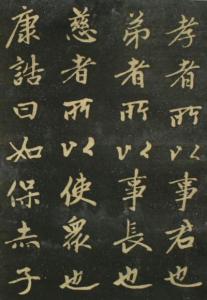 孝者所以事君也
弟者所以事長也
慈者所以使眾也
康誥曰如保赤子